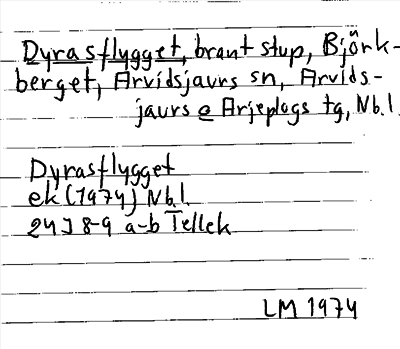 Dyrasflygget, brant stup, Björk-
berget, Arvidsjaurs sn, Arvids-
jaurs o Arjeplogs tg, Nb.l.
Dyrasflygget
ek (1974) Nb.l.
24J 8-9 a-b Tellek
LM 1974